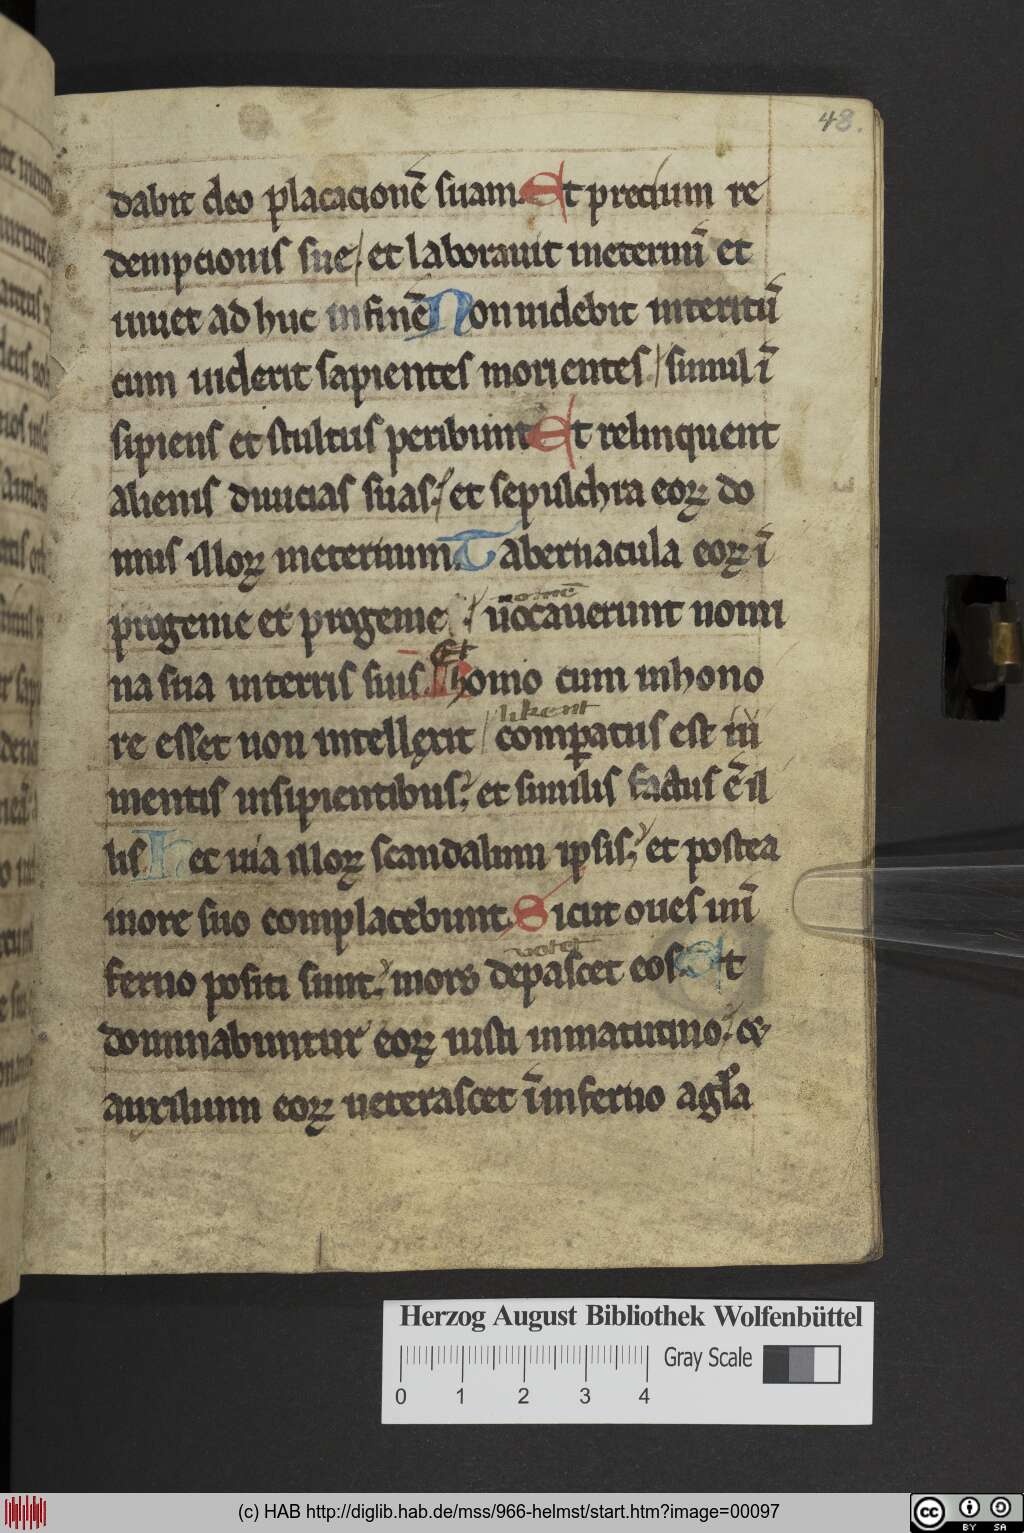 48.
dabit deo placacionē suam. Et precium re
dempcionis sue / et laborauit ineternū et
uiuet adhuc infinē Non uidebit interitū
cum uiderit sapientes morientes / simul ī
sipiens et stultus peribunt Et relinquent
alienis diuicias suas. / et sepulchra eoꝝ do
mus illoꝝ ineternum. Tabernacula eoꝝ ī
progenie et progenie ./ uocauerunt nomi
nomē
na sua interris suis. Et homo cum inhono
re esset non intellexit / comꝑatus est iu
likent
mentis insipientibus; et similis factus ē il
lis Hec uia illoꝝ scandalum ipsis; et postea
inore suo complacebunt. Sicut oues inī
ferno positi sunt. mors depascet eos. Et
dominabuntur eoꝝ iusti inmatutino. et
auxilium eoꝝ ueterascet īinferno agl̄a
Herzog August Bibliothek Wolfenbüttel
Gray Scale
0 1 2 3 4
(c) HAB http://diglib.hab.de/mss/966-helmst/start.htm?image=00097
cc BY SA